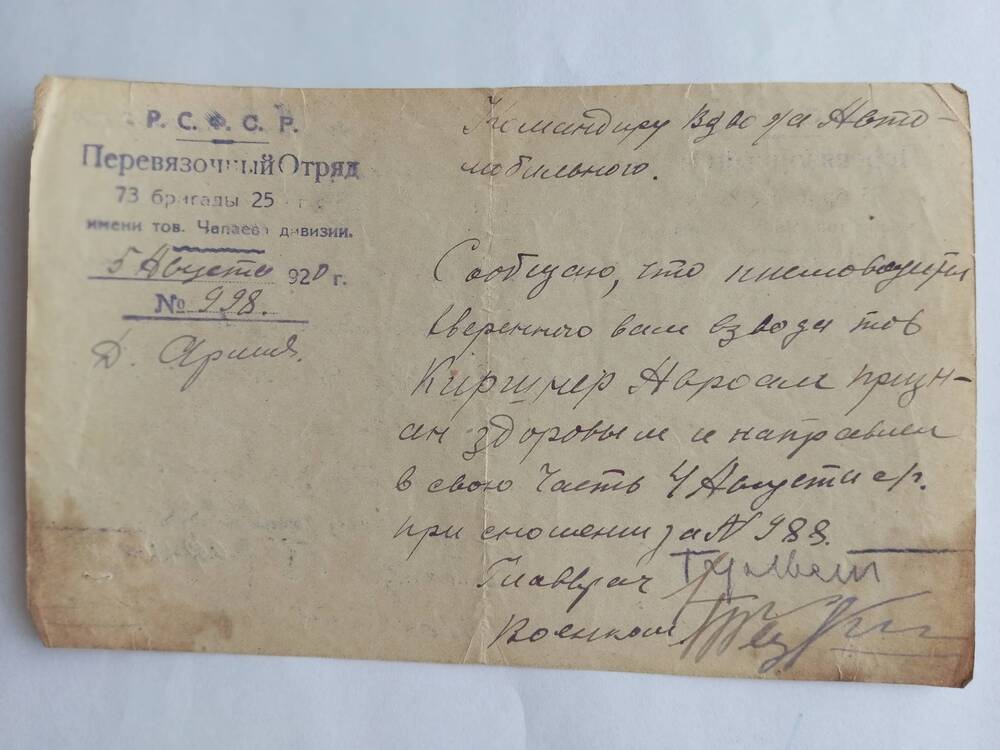 Р. С. Ф. С. Р.
Перевязочный Отряд
73 бригады 25
имени тов. Чапаева дивизии.
5 Августа 920 г.
№ 998.
Д.
Командиру Взвода Авто-
мобильного.
Сообщаю, что письмоводитель
вверенного вам взвода тов
Киршнер Авроам призн-
ан здоровым и направлен
в свою Часть 4 Августа с/г.
при сношении за № 988.
Главврач
Военком